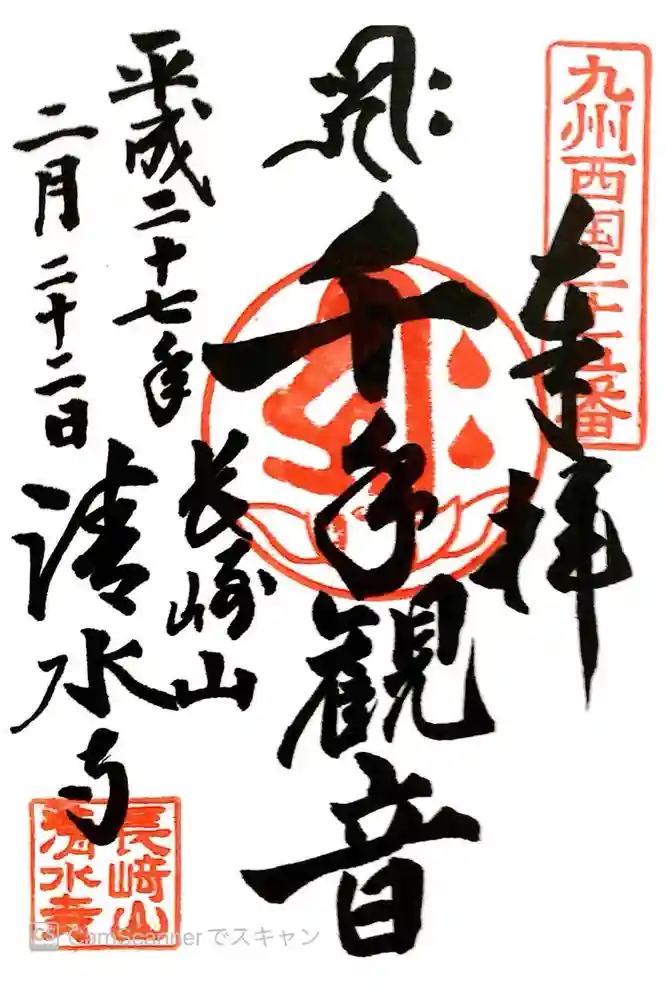 九州西国二十五番
奉拝
千手観音
平成二十七年
二月二十二日
長崎山
清水寺
長崎山
清水寺
CS CamScanner でスキャン